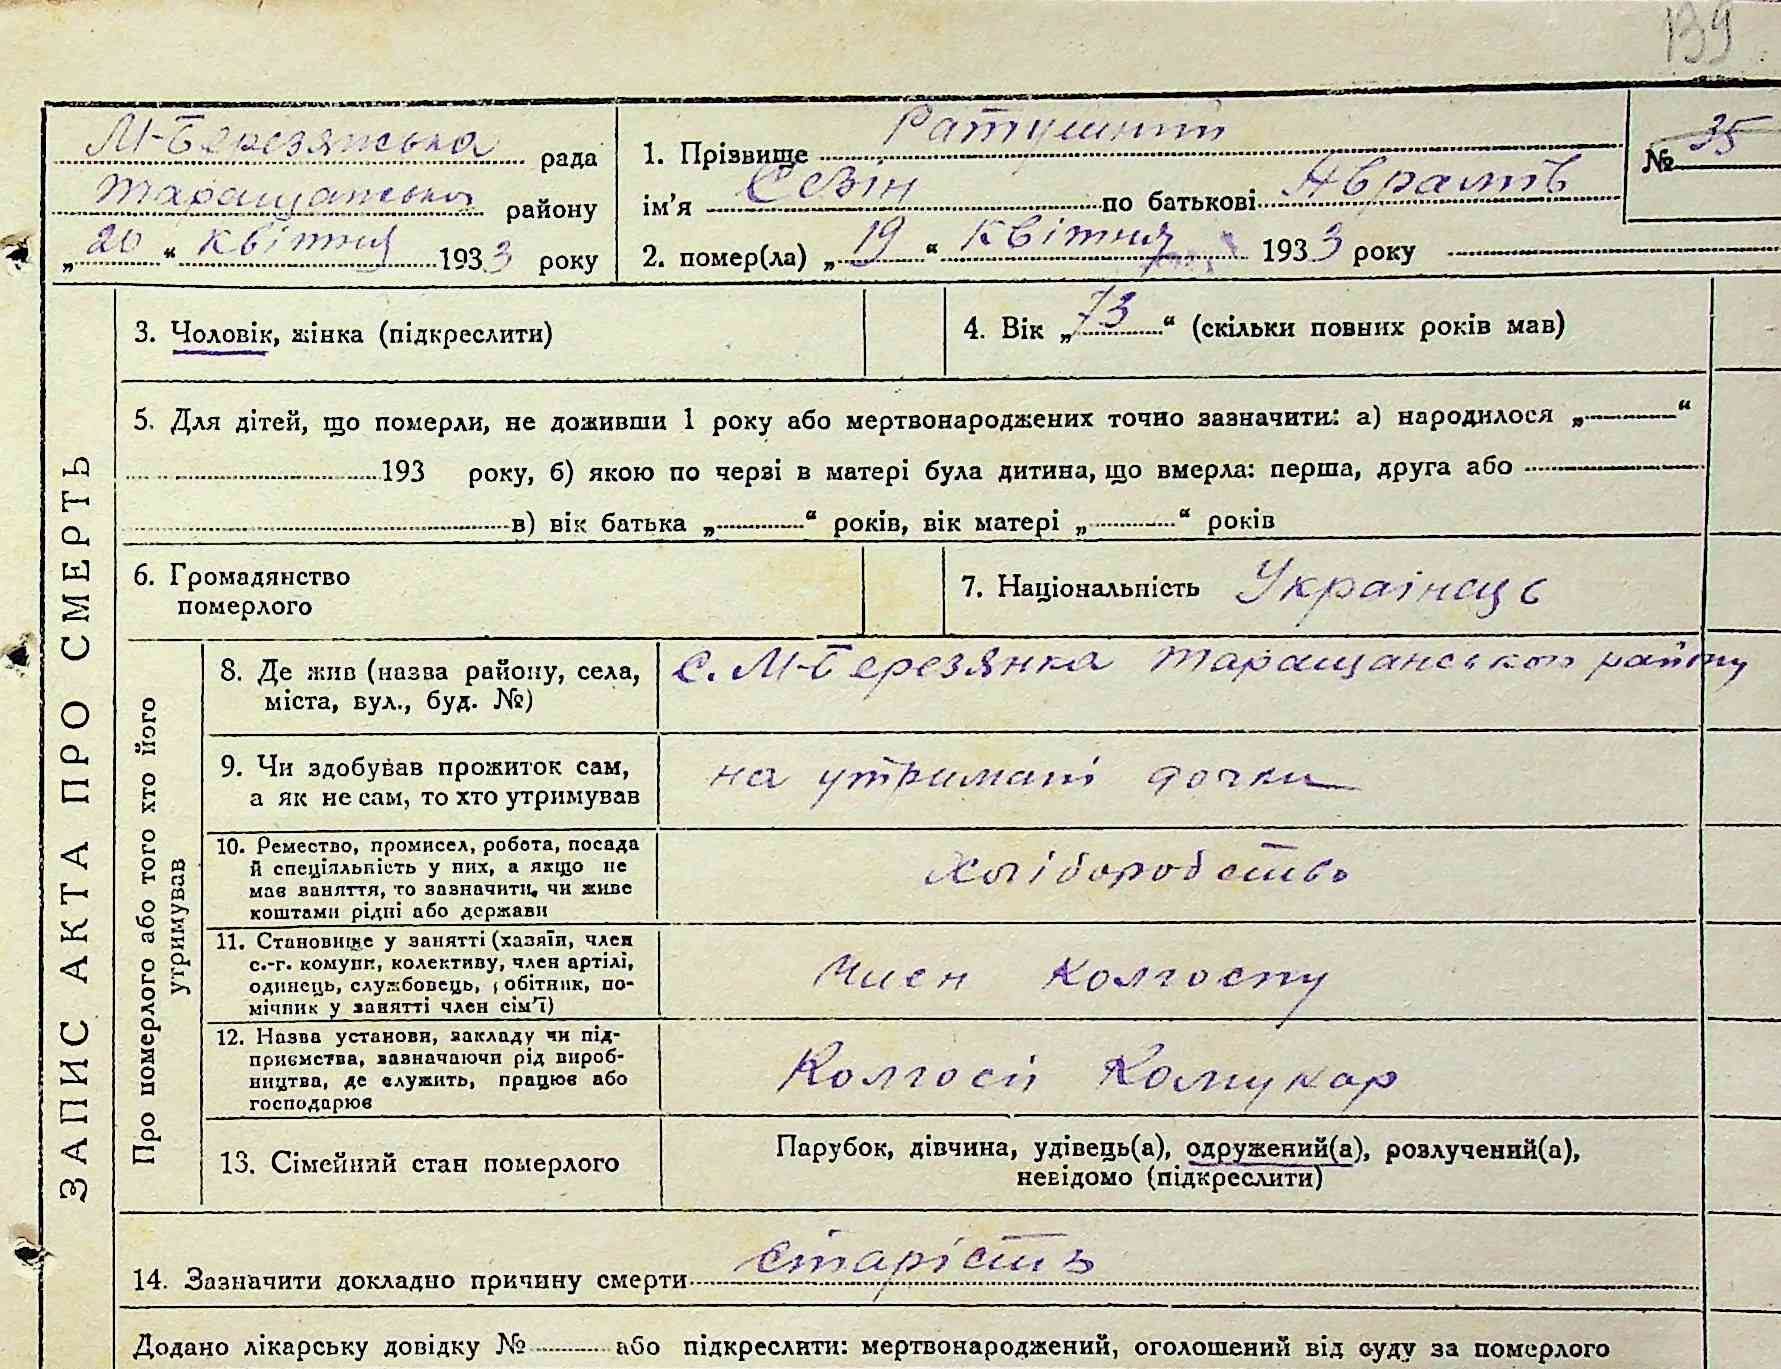 139
М-Березянська рада
Таращанська району
„20“ квітня 1933 року
1. Прізвище Ратушний
ім'я Євзін по батькові Аврамів
№ 35
2. помер(ла) „19“ квітня 1933 року
ЗАПИС АКТА ПРО СМЕРТЬ
3. Чоловік, жінка (підкреслити)
4. Вік „73“ (скільки повних років мав)
5. Для дітей, що померли, не доживши 1 року або мертвонароджених точно зазначити: а) народилося „ “
193 року, б) якою по черзі в матері була дитина, що вмерла: перша, друга або
в) вік батька „ “ років, вік матері „ “ років
6. Громадянство
померлого
7. Національність Українець
Про померлого або того хто його
утримував
8. Де жив (назва району, села,
міста, вул., буд. №)
с. М-Березянка Таращанського району
9. Чи здобував прожиток сам,
а як не сам, то хто утримував
на утримані дочки
10. Ремество, промисел, робота, посада
й спеціяльність у них, а якщо не
має заняття, то зазначити, чи живе
коштами рідні або держави
Хліборобство
11. Становище у занятті (хазяїн, член
с.-г. комуни, колективу, член артілі,
одинець, службовець, робітник, по-
мічник у занятті член сім'ї)
Член колгоспу
12. Назва установи, закладу чи під-
приємства, зазначаючи рід вироб-
ництва, де служить, працює або
господарює
Колгосп Комунар
13. Сімейний стан померлого
Парубок, дівчина, удівець(а), одружений(а), розлучений(а),
невідомо (підкреслити)
14. Зазначити докладно причину смерти старість
Додано лікарську довідку № або підкреслити: мертвонароджений, оголошений від суду за померлого